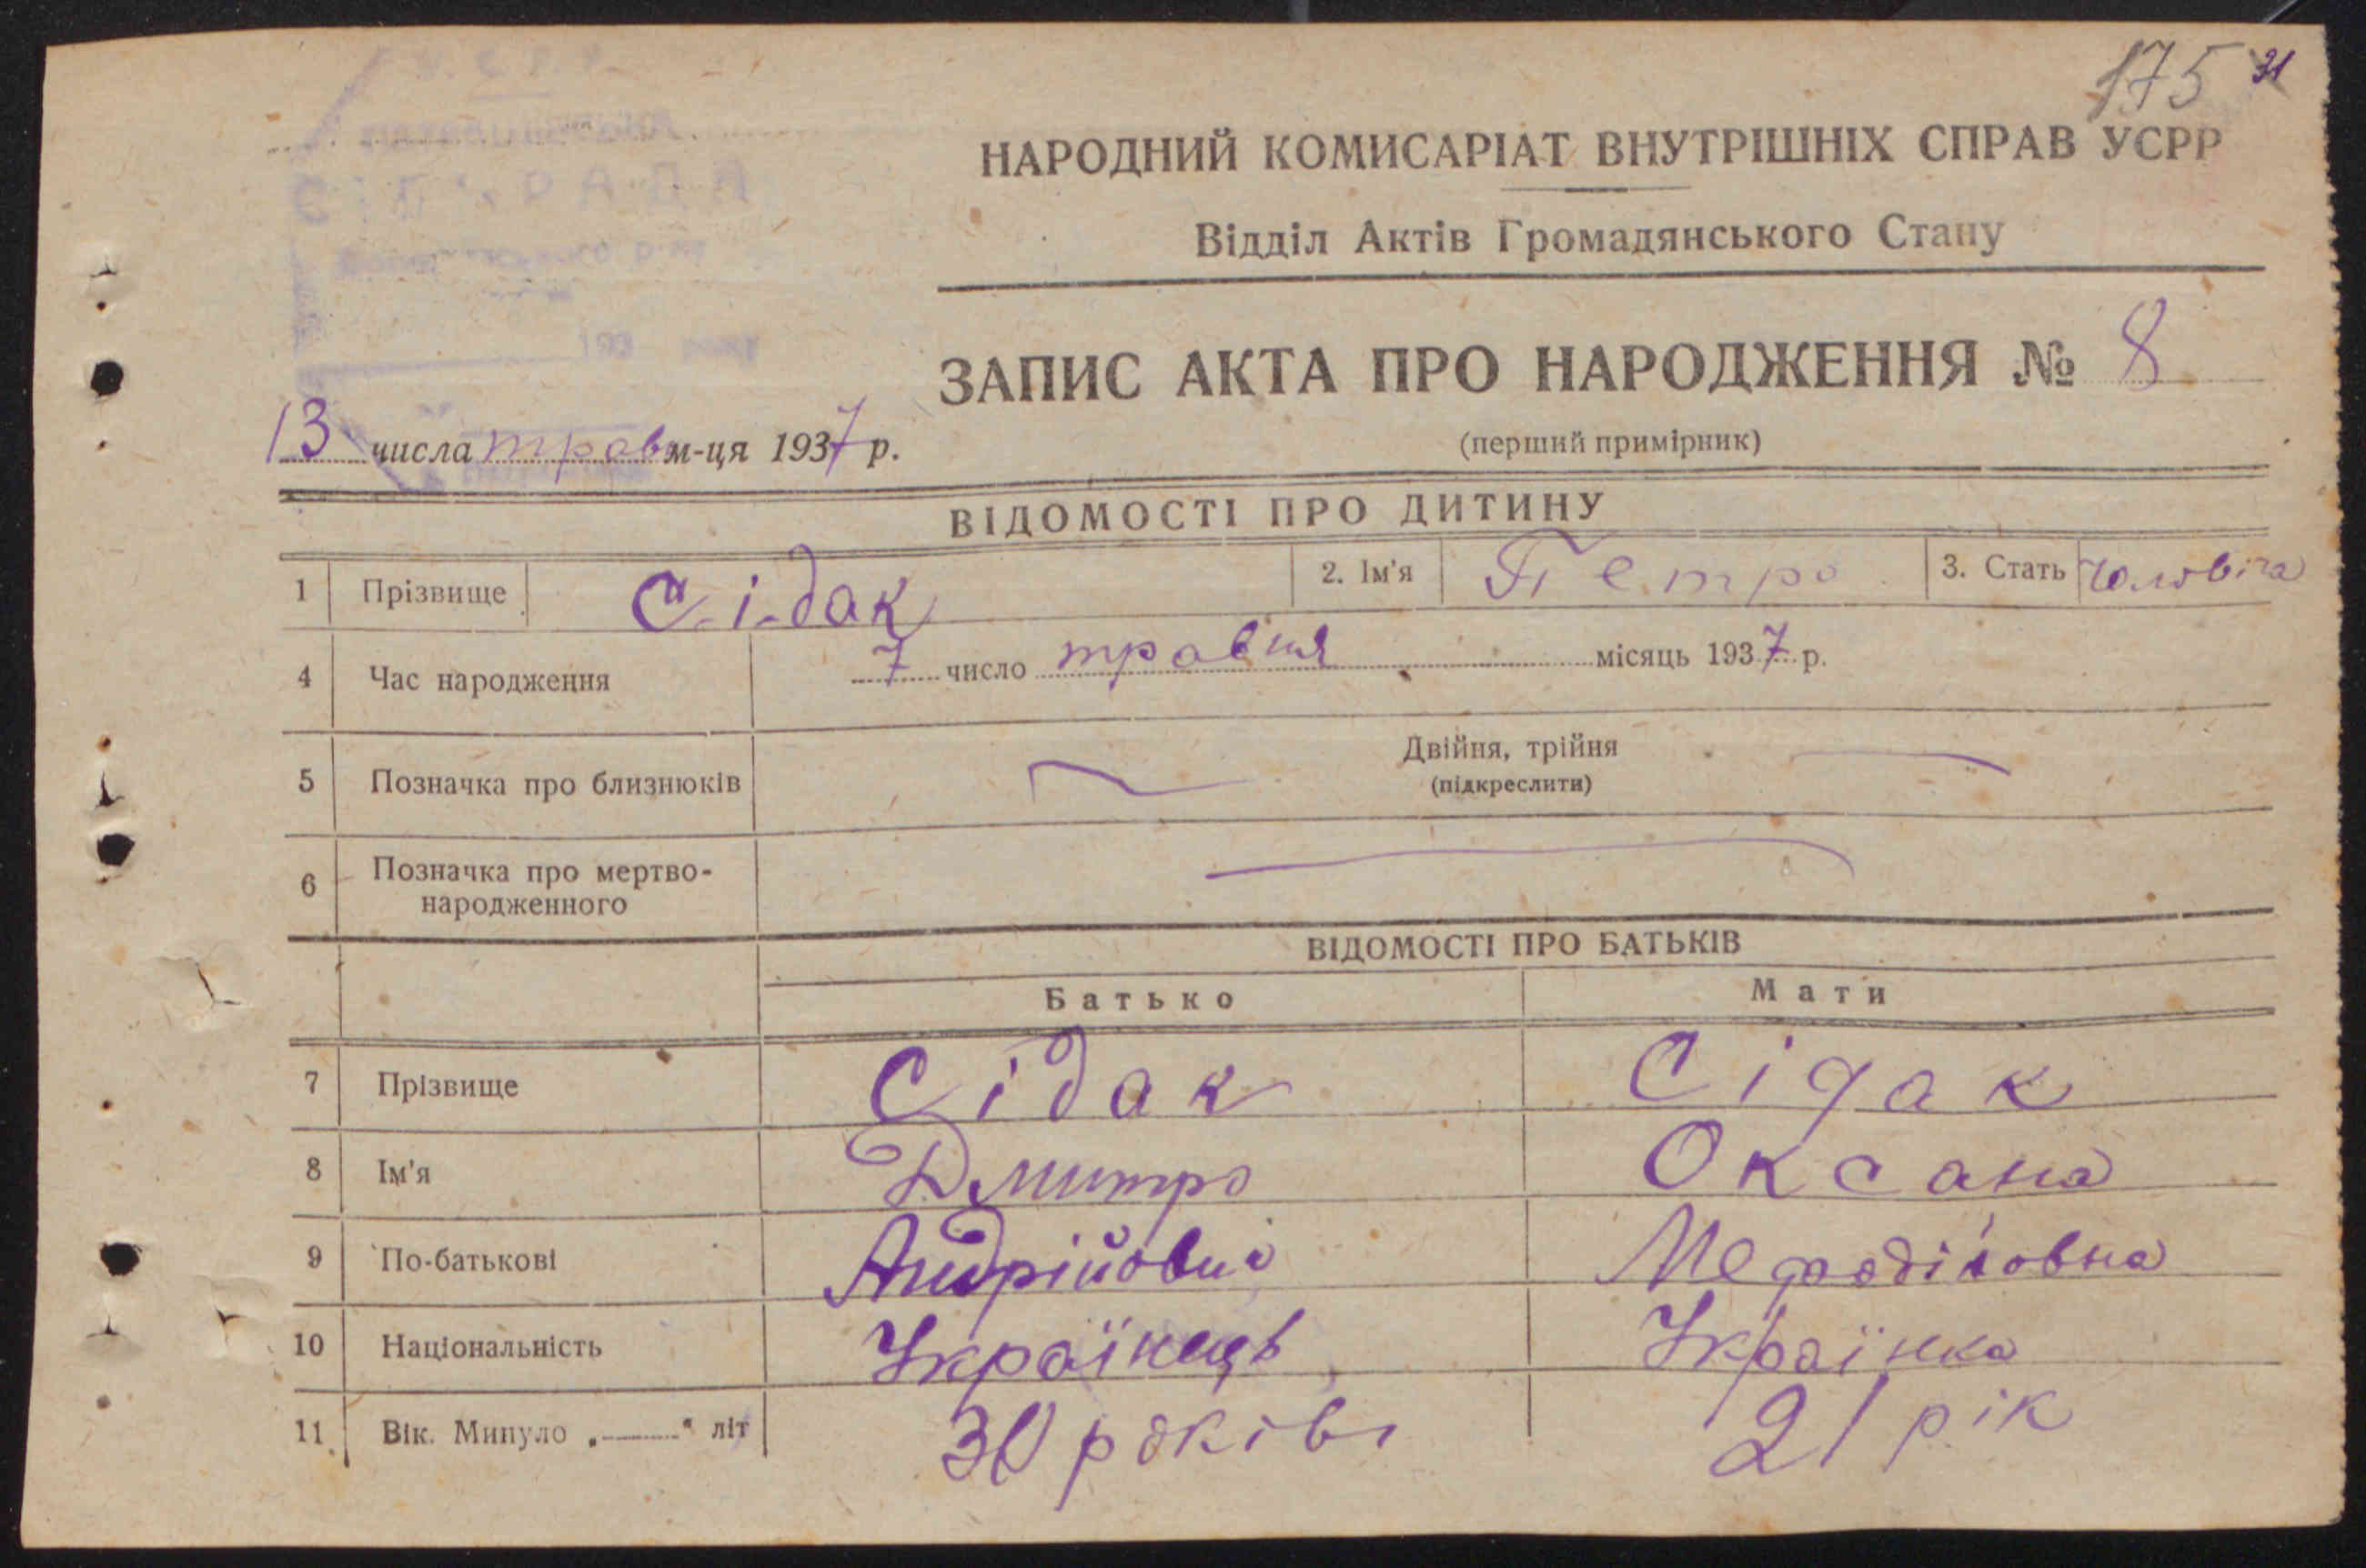 175 31
У.С.Р.Р.
СІЛЬРАДА
193 року
НАРОДНИЙ КОМИСАРІАТ ВНУТРІШНІХ СПРАВ УСРР
Відділ Актів Громадянського Стану
ЗАПИС АКТА ПРО НАРОДЖЕННЯ № 8
13 числа трав м-ця 1937 р.
(перший примірник)
ВІДОМОСТІ ПРО ДИТИНУ
1 Прізвище Сідак 2. Ім'я Петро 3. Стать Чоловіча
4 Час народження 7 число травня місяць 1937 р.
5 Позначка про близнюків Двійня, трійня
(підкреслити)
6 Позначка про мертво-
народженного
ВІДОМОСТІ ПРО БАТЬКІВ
Батько Мати
7 Прізвище Сідак Сідак
8 Ім'я Дмитро Оксана
9 По-батькові Андрійович Мефодійовна
10 Національність Українець Українка
11 Вік. Минуло „ “ літ 30 років 21 рік